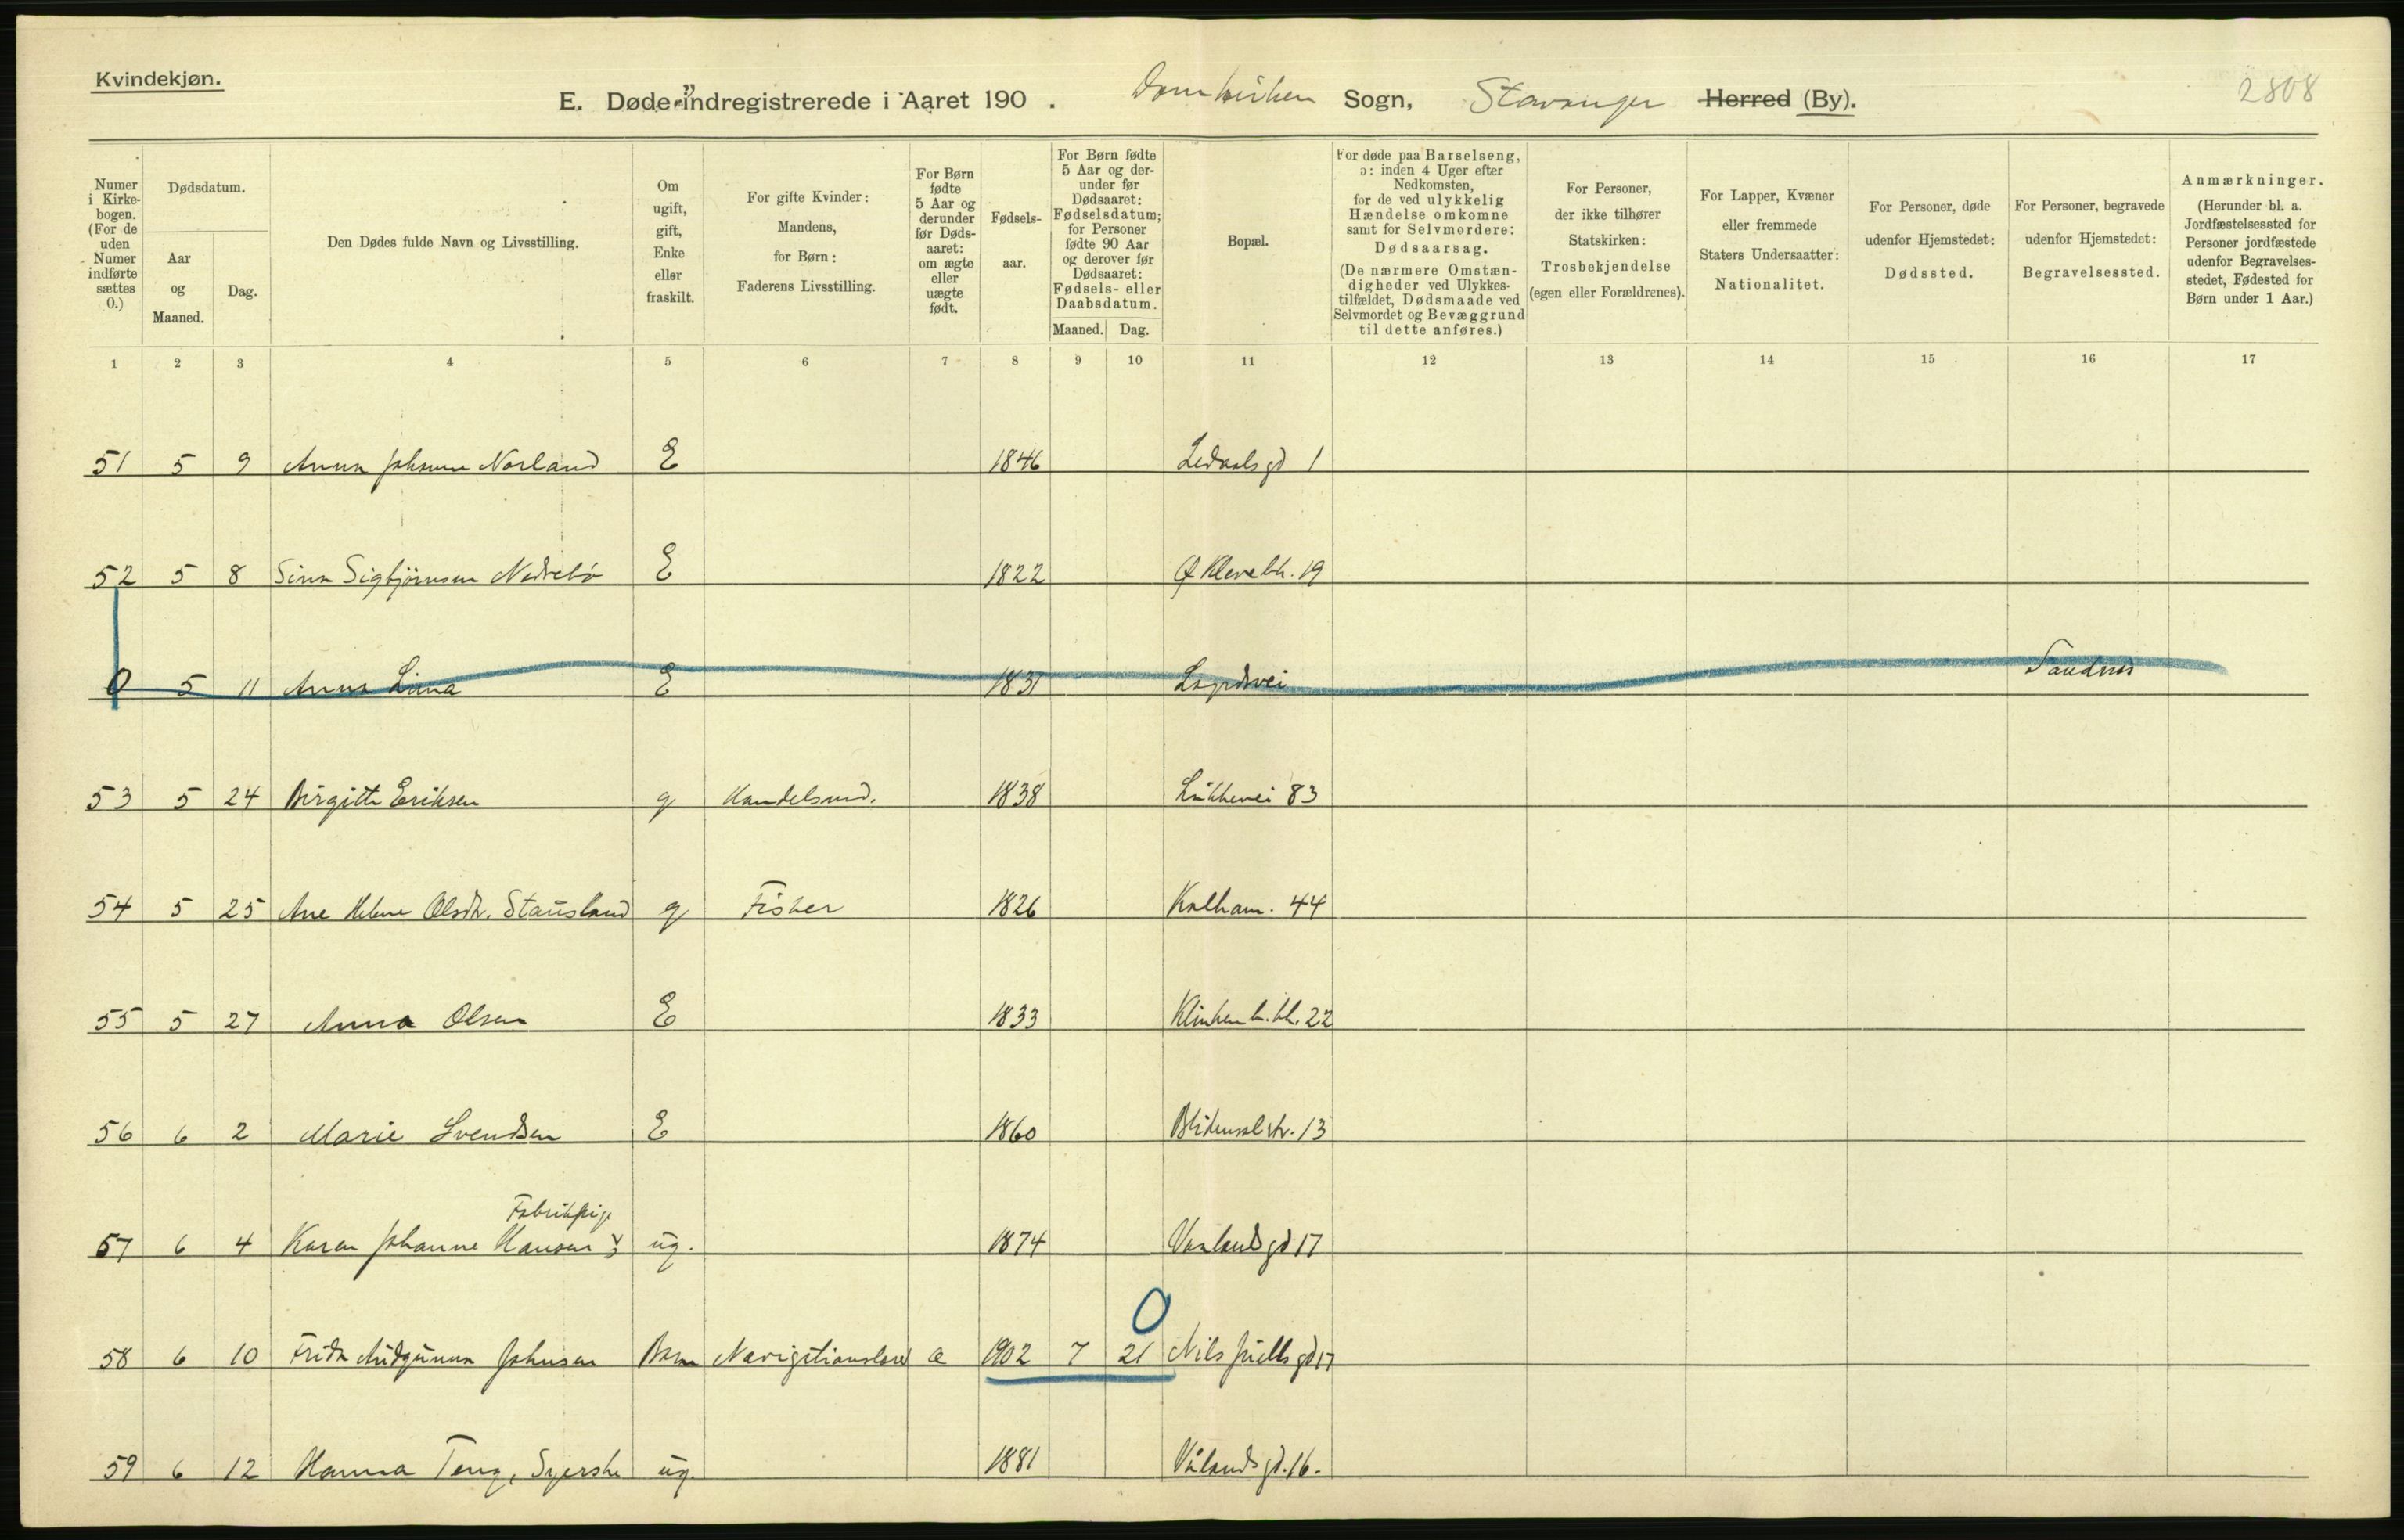 Kvindekjøn.
E. Døde indregistrerede i Aaret 190 . Domkirken Sogn, Stavanger Herred (By). 2808
Numer i Kirkebogen. (For de uden Numer indførte sættes 0.)
Dødsdatum.
Aar og Maaned.
Dag.
Den Dødes fulde Navn og Livsstilling.
Om ugift, gift, Enke eller fraskilt.
For gifte Kvinder: Mandens, for Børn: Faderens Livsstilling.
For Børn fødte 5 Aar og derunder før Dødsaaret: om ægte eller uægte født.
Fødselsaar.
For Børn fødte 5 Aar og derunder før Dødsaaret: Fødselsdatum; for Personer fødte 90 Aar og derover før Dødsaaret: Fødsels- eller Daabsdatum.
Maaned. Dag.
Bopæl.
For døde paa Barselseng, ɔ: inden 4 Uger efter Nedkomsten, for de ved ulykkelig Hændelse omkomne samt for Selvmordere: Dødsaarsag. (De nærmere Omstændigheder ved Ulykkestilfældet, Dødsmaade ved Selvmordet og Bevæggrund til dette anføres.)
For Personer, der ikke tilhører Statskirken: Trosbekjendelse (egen eller Forældrenes).
For Lapper, Kvæner eller fremmede Staters Undersaatter: Nationalitet.
For Personer, døde udenfor Hjemstedet: Dødssted.
For Personer, begravede udenfor Hjemstedet: Begravelsessted.
Anmærkninger. (Herunder bl. a. Jordfæstelsessted for Personer jordfæstede udenfor Begravelsesstedet, Fødested for Børn under 1 Aar.)
1 2 3 4 5 6 7 8 9 10 11 12 13 14 15 16 17
51 5 9 Anna Johanne Norland E 1846 Ledaalsgd 1
52 5 8 Sina Sigbjörnsen Nedrebö E 1822 Ø Klevebk. 19
0 5 11 Anna Lima E 1831 Lagårdsvei Sandnes
53 5 24 Birgitte Eriksen g Handelsmd. 1838 Løkkevei 83
54 5 25 Ane Helene Olsdtr. Stausland g Fisker 1826 Kalham. 44
55 5 27 Anna Olsen E 1833 Klinkenb. bk. 22
56 6 2 Marie Svendsen E 1860 Blidensolstr. 13
Fabrikpige
57 6 4 Karen Johanne Hansen ug. 1874 Vaalandsgd 17
58 6 10 Frida Audgunna Johnsen Barn Navigationslærer æ 1902 7 21 0 Nils Juells gd 17
59 6 12 Hanna Teng, Syerske ug. 1881 Vålandsgd. 16.